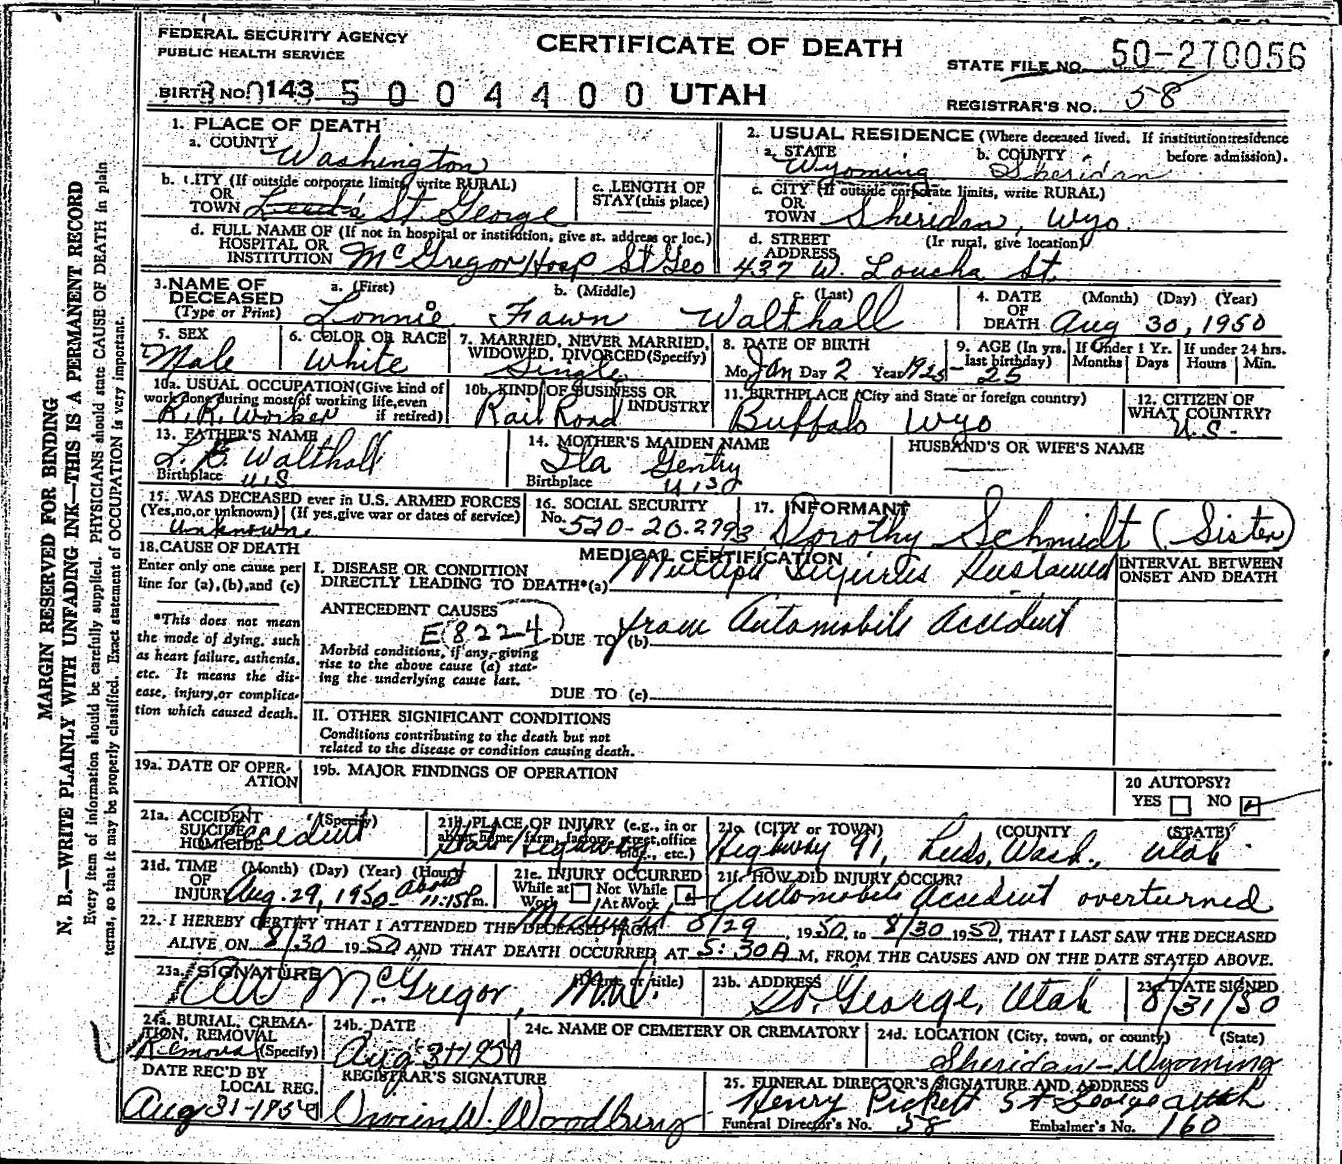 FEDERAL SECURITY AGENCY
PUBLIC HEALTH SERVICE
CERTIFICATE OF DEATH
STATE FILE NO. 50-270056
BIRTH NO. 143 5 0 0 4 4 0 0 UTAH
REGISTRAR'S NO. 58
MARGIN RESERVED FOR BINDING
N. B.—WRITE PLAINLY WITH UNFADING INK—THIS IS A PERMANENT RECORD
Every item of information should be carefully supplied. PHYSICIANS should state CAUSE OF DEATH in plain
terms, so that it may be properly classified. Exact statement of OCCUPATION is very important.
1. PLACE OF DEATH
a. COUNTY Washington
2. USUAL RESIDENCE (Where deceased lived. If institution: residence before admission).
a. STATE Wyoming b. COUNTY Sheridan
b. CITY (If outside corporate limits, write RURAL) OR TOWN Leeds St. George
c. LENGTH OF STAY (this place)
c. CITY (If outside corporate limits, write RURAL) OR TOWN Sheridan, Wyo.
d. FULL NAME OF (If not in hospital or institution, give st. address or loc.) HOSPITAL OR INSTITUTION McGregor Hosp St Geo
d. STREET ADDRESS (If rural, give location) 437 W. Loucha St.
3. NAME OF DECEASED (Type or Print)
a. (First) Lonnie b. (Middle) Fawn c. (Last) Walthall
4. DATE OF DEATH (Month) (Day) (Year) Aug 30, 1950
5. SEX Male
6. COLOR OR RACE White
7. MARRIED, NEVER MARRIED, WIDOWED, DIVORCED (Specify) Single
8. DATE OF BIRTH Mo. Jan Day 2 Year 1925
9. AGE (In yrs. last birthday) 25
If Under 1 Yr. Months Days
If under 24 hrs. Hours Min.
10a. USUAL OCCUPATION (Give kind of work done during most of working life, even if retired) R.R. Worker
10b. KIND OF BUSINESS OR INDUSTRY Rail Road
11. BIRTHPLACE (City and State or foreign country) Buffalo Wyo
12. CITIZEN OF WHAT COUNTRY? U.S.
13. FATHER'S NAME L. B. Walthall
Birthplace U.S.
14. MOTHER'S MAIDEN NAME Ila Gentry
Birthplace
HUSBAND'S OR WIFE'S NAME
15. WAS DECEASED ever in U.S. ARMED FORCES (Yes, no, or unknown) (If yes, give war or dates of service) Unknown
16. SOCIAL SECURITY No. 520-20-2793
17. INFORMANT Dorothy Schmidt (Sister)
18. CAUSE OF DEATH
Enter only one cause per line for (a), (b), and (c)
*This does not mean the mode of dying, such as heart failure, asthenia, etc. It means the disease, injury, or complication which caused death.
MEDICAL CERTIFICATION
I. DISEASE OR CONDITION DIRECTLY LEADING TO DEATH*(a) Multiple Injuries Sustained
INTERVAL BETWEEN ONSET AND DEATH
ANTECEDENT CAUSES
E 8224 DUE TO (b) from Automobile accident
Morbid conditions, if any, giving rise to the above cause (a) stating the underlying cause last.
DUE TO (c)
II. OTHER SIGNIFICANT CONDITIONS
Conditions contributing to the death but not related to the disease or condition causing death.
19a. DATE OF OPERATION
19b. MAJOR FINDINGS OF OPERATION
20 AUTOPSY?
YES NO
21a. ACCIDENT SUICIDE HOMICIDE (Specify) Accident
21b. PLACE OF INJURY (e.g., in or about home, farm, factory, street, office bldg., etc.) State Highway
21c. (CITY or TOWN) (COUNTY (STATE) Highway 91, Leeds, Wash., Utah
21d. TIME OF INJURY (Month) (Day) (Year) (Hour) Aug. 29, 1950 about 11:15P m.
21e. INJURY OCCURRED While at Work Not While At Work
21f. HOW DID INJURY OCCUR? Automobile Accident overturned
22. I HEREBY CERTIFY THAT I ATTENDED THE DECEASED FROM Midnight 8/29, 1950, to 8/30 1950, THAT I LAST SAW THE DECEASED
ALIVE ON 8/30 1950 AND THAT DEATH OCCURRED AT 5:30A M, FROM THE CAUSES AND ON THE DATE STATED ABOVE.
23a. SIGNATURE (Degree or title) McGregor, M.D.
23b. ADDRESS St. George, Utah
23c. DATE SIGNED 8/31/50
24a. BURIAL, CREMATION, REMOVAL (Specify) Removal
24b. DATE Aug 31-1950
24c. NAME OF CEMETERY OR CREMATORY
24d. LOCATION (City, town, or county) (State) Sheridan-Wyoming
DATE REC'D BY LOCAL REG. Aug 31-1950
REGISTRAR'S SIGNATURE W. Woodbury
25. FUNERAL DIRECTOR'S SIGNATURE AND ADDRESS Henry Pickett St George Utah
Funeral Director's No. 58 Embalmer's No. 160